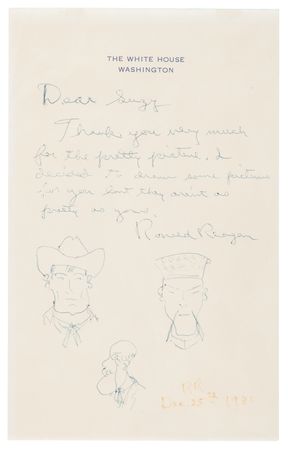 THE WHITE HOUSE
WASHINGTON
Dear Suzy
Thank you very much
for the pretty picture. I
decided to draw some pictures
for you but they aren't as
pretty as you.
Ronald Reagan
RR
Dec. 25th 1981